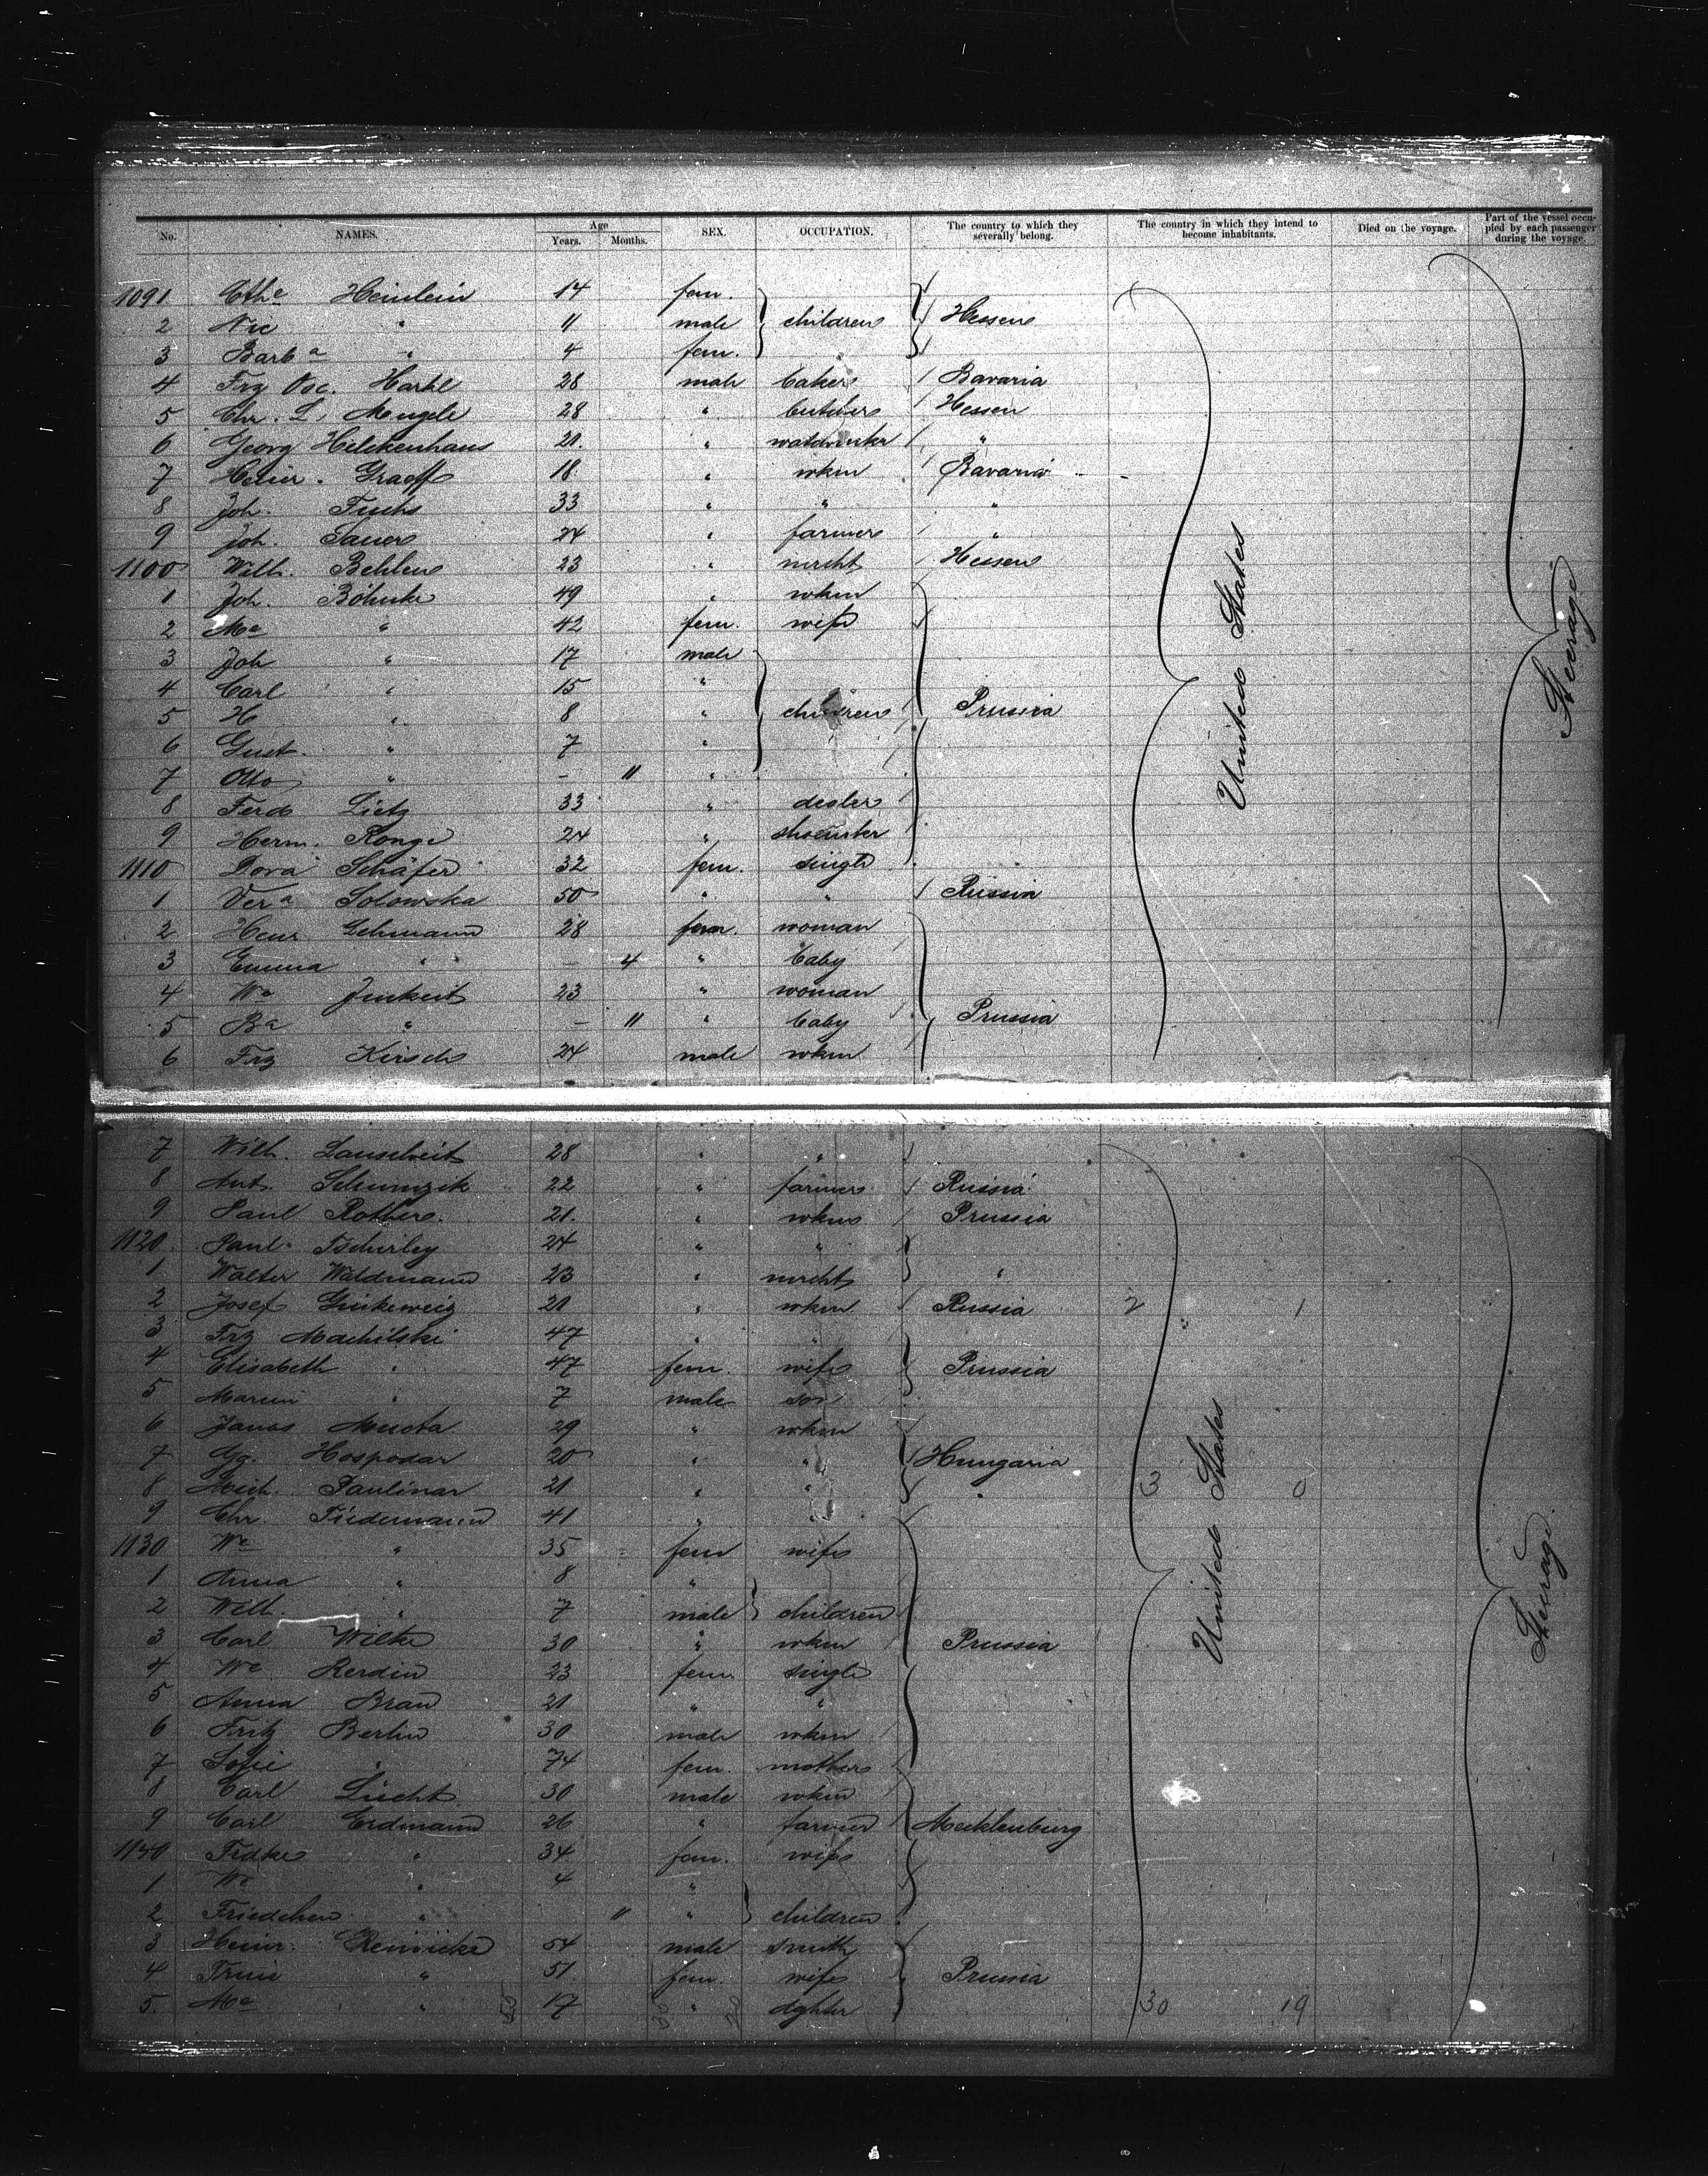 No. NAMES. Age Years. Months. SEX. OCCUPATION. The country to which they severally belong. The country in which they intend to become inhabitants. Died on the voyage. Part of the vessel occupied by each passenger during the voyage.
1091 Cthe Heinlein 14 fem.
2 Nic " 11 male children Hessen
3 Barba " 4 fem.
4 Frz Osc. Hartl 28 male baker Bavaria
5 Chr. L. Mengele 28 " butcher Hessen
6 Georg Helckenhaus 21. " "
7 Heinr. Graeff 18 " wkm Bavaria
8 Joh. Fuchs 33 " " "
9 Joh. Sauer 24 " farmer "
1100 Wilh. Behlen 23 " mrcht Hessen
1 Joh. Böhnke 49 " wkm
2 Ma " 42 fem. wife
3 Joh " 17 male
4 Carl " 15 "
5 H " 8 " children Prussia
6 Gust. " 7 "
7 Otto " - 11 "
8 Ferd Lietz 33 " dealer
9 Herm. Ronge 24 " shoemkr
1110 Dora Schäfer 32 fem. single
1 Vera Solowska 50 " " Russia
2 Henr. Lehmann 28 fem. woman
3 Emma " - 4 " baby
4 We Junkeit 23 " woman
5 Ba " - 11 " baby Prussia
6 Frz Kirsch 24 male wkm
United States
Steerage
7 Wilh. Lauscheit 28 " "
8 Ant. Schumzek 22 " farmer Russia
9 Paul Rother. 21. " wkm Prussia
1120 Paul Tschirley 24 " "
1 Walter Waldmann 23 " mrcht "
2 Josef Ginkeweig 21 " wkm Russia 2 1
3 Frz Machilski 47 " "
4 Elisabeth " 47 fem. wife Prussia
5 Marcin " 7 male son
6 Janos Mucta 29 " wkm
7 Gg. Hospodar 20 " " Hungaria
8 Mich. Paulinar 21 " " " 3 0
9 Chr. Tiedemann 41 " "
1130 We " 35 fem wife
1 Anna " 8 "
2 Wilh " 7 male children
3 Carl Wilke 30 " wkm Prussia
4 We Rerdin 23 fem. single
5 Anna Braun 21 " "
6 Fritz Berlin 30 male wkm
7 Sofie " 74 fem. mother
8 Carl Lücht 30 male wkm
9 Carl Erdmann 26 " farmer Mecklenburg
1140 Frdke " 34 fem. wife
1 We " 4 "
2 Friedchen " 11 " children
3 Heinr. Reinicke 54 male smith
4 Trine " 51 fem. wife Prussia
5. Ma " 17 " dghter 30 19
United States
Steerage